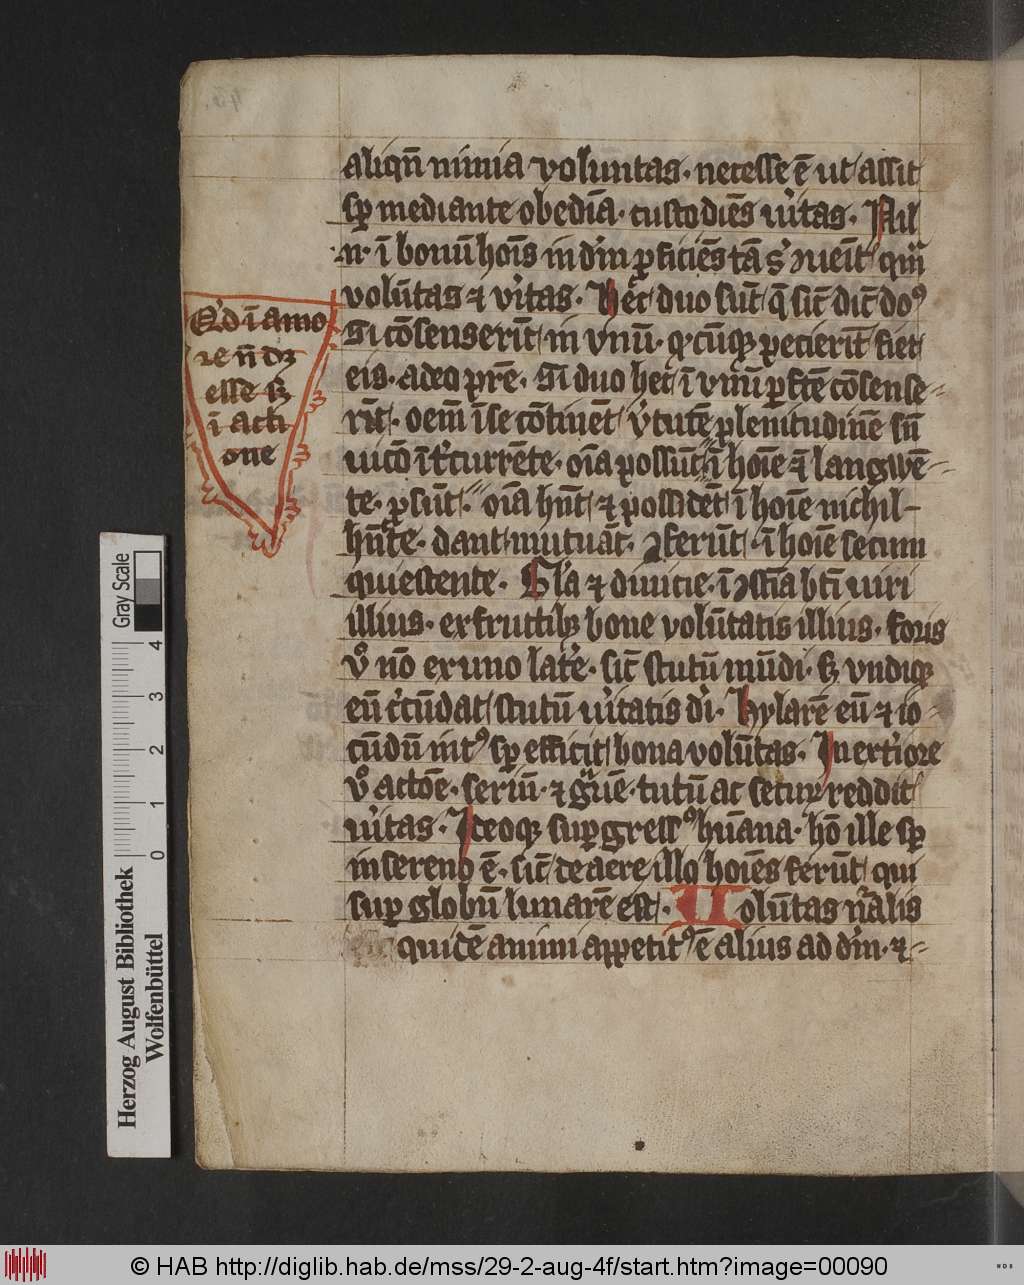 aliqn̄ nimia voluntas. necesse ē ut assit
sꝑ mediante obedīa. custodiēs uˀitas. Nil
.n. ī bonū hoīs in dm̄ ꝓficiēs tā sˀ ꝯueīt qm̄
volūtas ⁊ vˀitas. Hec duo sūt q̄ sic̄ dic̄ doꝰ
si cōsenserīt in vnū. qͣcūqꝫ pecierīt fiet
eis. a deo prē. Si duo hec ī vnū ꝑfcē cōsense-
rīt. oēm ī se cōtinēt vˀtutē plenitudinē sn̄
uicō ītˀcurrēte. oīa possūt ī hoīe ē langwē-
te. ꝓsūt. oīa hn̄t ⁊ possidēt ī hoīe nichil-
hn̄te. dant mutuāt. ꝯferūt. ī hoīe secum
quiescente. Gla ⁊ diuicie. ī ꝯscīa bti uiri
illius. ex fructibꝫ bone volūtatis illius. foris
vͦ nō ex uno latˀe. sic̄ scutū mūdi. sꝫ vndiqꝫ
eū cˀcūdat scutū uˀitatis dˀi. hylarē eū ⁊ io-
cūdū intꝰ sꝑ efficit bona volūtas. In extˀiore
vͦ actōe. seriū. ⁊ gͣuē. tutū ac secuꝝ reddit
uˀitas. Ideoqꝫ supergressꝰ hūana. hō ille sꝑ
in sereno ē. sic̄ de aere illo hoīes ferūt qui
supꝑ globū lunarē est. Uolūtas nˀalis
quidē animi appetitꝰ ē alius ad dm̄. ⁊-
Qd ī amo
re n̄ dꝫ
esse sꝫ
ī acti
one
Gray Scale
4
3
2
1
0
Herzog August Bibliothek
Wolfenbüttel
© HAB http://diglib.hab.de/mss/29-2-aug-4f/start.htm?image=00090